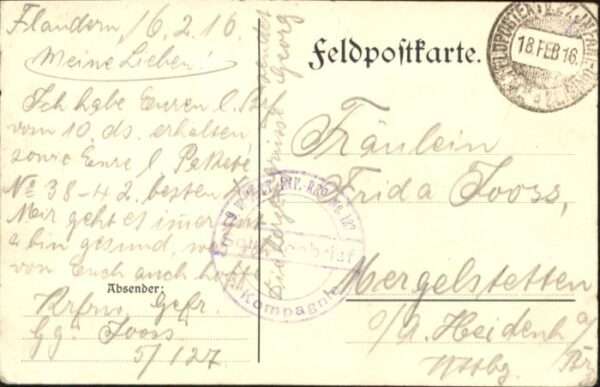 Flandern, 16.2.16
Meine Lieben!
Ich habe Euren l. Brf
vom 10. ds. erhalten
sowie Eure l. Pakete
No 38-42. besten
Mir geht es immer gut
bin gesund, was
von Euch auch hoffe
Herzl. Grüsse sendet
Georg
Absender:
Krfrw. Gefr.
Gg. Jooss
5/127
Feldpostkarte.
18 FEB 16.
Fräulein
Frida Jooss,
Mergelstetten
o/A. Heidenh a/
Brz
Wttbg.
Kompagnie